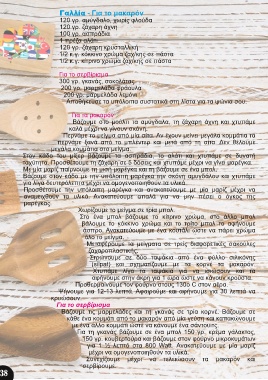 Γαλλία - Για το μακαρόν
120 γρ. αμύγδαλο, χωρίς φλούδα
120 γρ. ζάχαρη άχνη
100 γρ. ασπράδια
1 πρέζα αλάτι
120 γρ. ζάχαρη κρυσταλλική
1/2 κ.γ. κόκκινο χρώμα ζαχ/κης σε πάστα
1/2 κ.γ. κίτρινο χρώμα ζαχ/κης σε πάστα
Για το σερβίρισμα
300 γρ. γκανάς, σοκολάτας
200 γρ. μαρμελάδα φράουλα
200 γρ. μαρμελάδα λεμόνι
Αποθήκευσε τα υπόλοιπα συστατικά στη λίστα για τα ψώνια σου.
Για τα μακαρόν
Βάζουμε στο μούλτι τα αμύγδαλα, τη ζάχαρη άχνη και χτυπάμε
καλά μέχρι να γίνουν σκόνη.
Περνάμε το μείγμα από μία σίτα. Αν έχουν μείνει μεγάλα κομμάτια τα
περνάμε ξανά από το μπλέντερ και μετά από τη σίτα. Δεν θέλουμε
μεγάλα κομμάτια στο μείγμα.
Στον κάδο του μίξερ βάζουμε τα ασπράδια, το αλάτι και χτυπάμε σε δυνατή
ταχύτητα. Προσθέτουμε τη ζάχαρη σε 3 δόσεις και χτυπάμε μέχρι να γίνει μαρέγκα.
Με μία μαρίζ παίρνουμε τη μισή μαρέγκα και τη βάζουμε σε ένα μπολ.
Βάζουμε στον κάδο με την υπόλοιπη μαρέγκα την σκόνη αμυγδάλου και χτυπάμε
για λίγα δευτερόλεπτα μέχρι να ομογενοποιηθούν τα υλικά.
Προσθέτουμε την υπόλοιπη μαρέγκα και ανακατεύουμε με μία μαρίζ μέχρι να
αναμειχθούν τα υλικά. Ανακατεύουμε απαλά για να μην πέσει ο όγκος της
μαρέγκας.
Χωρίζουμε το μείγμα σε τρία μπολ.
Στο ένα μπολ βάζουμε το κίτρινο χρώμα, στο άλλο μπολ
βάλουμε το κόκκινο χρώμα και το τρίτο μπολ το αφήνουμε
άσπρο. Ανακατεύουμε με ένα κουτάλι ώστε να πάρει χρώμα
όλο το μείγμα.
Μεταφέρουμε τα μείγματα σε τρεις διαφορετικές σακούλες
ζαχαροπλαστικής.
Στρώνουμε σε δύο ταψάκια από ένα φύλλο σιλικόνης
και σχηματίζουμε με το κορνέ τα μακαρόν.
Χτυπάμε λίγο τα ταψάκια για να φύγουν και τα
αφήνουμε στην άκρη για 1 ώρα ώστε να κάνουν κρούστα.
Προθερμαίνουμε τον φούρνο στους 130ο C στον αέρα.
Ψήνουμε για 12-13 λεπτά. Αφαιρούμε και αφήνουμε για 30 λεπτά να
κρυώσουν.
Για το σερβίρισμα
Βάζουμε τις μαρμελάδες και τη γκανάς σε τρία κορνέ. Βάζουμε σε
κάθε ένα κομμάτι από το μακαρόν από μία γέμιση και καπακώνουμε
με ένα άλλο κομμάτι ώστε να κάνουμε ένα σάντουιτς.
Για τη γκανάς βάζουμε σε ένα μπολ 150 γρ. κρέμα γάλακτος,
150 γρ. κουβερτούρα και βάζουμε στον φούρνο μικροκυμάτων
για 1 ½ λεπτό στα 800 Watt. Ανακατεύουμε με μία μαρίζ
μέχρι να ομογενοποιηθούν τα υλικά.
Συνεχίζουμε μέχρι να τελειώσουν τα μακαρόν και
σερβίρουμε.
38